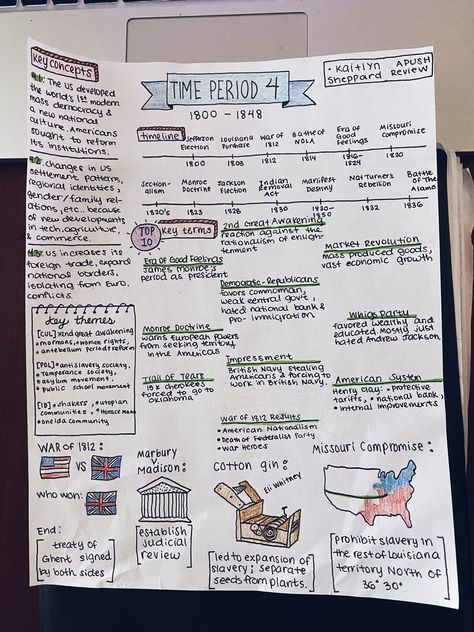 Key concepts
4.1: The US developed
the world's 1st modern
mass democracy &
a new national
culture. Americans
sought to reform
its institutions.
4.2: changes in US
settlement pattern,
regional identities,
gender/family rel-
ations, etc.. because
of new developments
in tech, agriculture,
& commerce.
4.3: US increases its
foreign trade, expand
national borders,
isolating from Euro.
conflicts.
key themes
[CUL] • 2nd great awakening
• mormons, • women rights,
• antebellum period & reform
[POL] • antislavery society,
• Temperance society,
• asylum movement,
• public school movement
[ID] • shakers, • utopian
communities, • Horace Mann
• oneida community
TIME PERIOD 4
1800 - 1848
• Kaitlyn APUSH
Sheppard Review
timeline
Jefferson Election
Louisiana Purchase
War of 1812
Battle of NOLA
Era of Good Feelings
Missouri Compromise
1800
1803
1812
1814
1816-1824
1820
Section-alism
Monroe Doctrine
Jackson Election
Indian Removal Act
Manifest Destiny
Nat Turner's Rebellion
Battle of The Alamo
1820's
1823
1828
1830
1830-1850
1836
TOP 10
Key terms
Era of Good Feelings
James Monroe's
period as president
Monroe Doctrine
warns European powers
from seeking territory
in the Americas
Trail of Tears
15k cherokees
forced to go to
oklahoma
2nd Great Awakening
reaction against the
rationalism of enligh-
tenment
Democratic-Republicans
favors commonman,
weak central govt,
hated national bank &
pro-immigration
Impressment
British Navy stealing
Americans & forcing to
work in British Navy.
War of 1812 Results
• American Nationalism
• Death of Federalist Party
• War Heroes
Market Revolution
mass produced goods,
vast economic growth
Whig Party
favored wealthy and
educated. Mostly just
hated Andrew Jackson.
American System
Henry Clay: • protective
tariffs, • national bank,
• internal improvements
WAR OF 1812:
VS
Who won:
End:
treaty of
Ghent signed
by both sides
Marbury
v
Madison:
establish
judicial
review
Cotton gin:
Eli Whitney
led to expansion of
slavery; separate
seeds from plants.
Missouri Compromise:
prohibit slavery in
the rest of Louisiana
territory North of
36° 30°